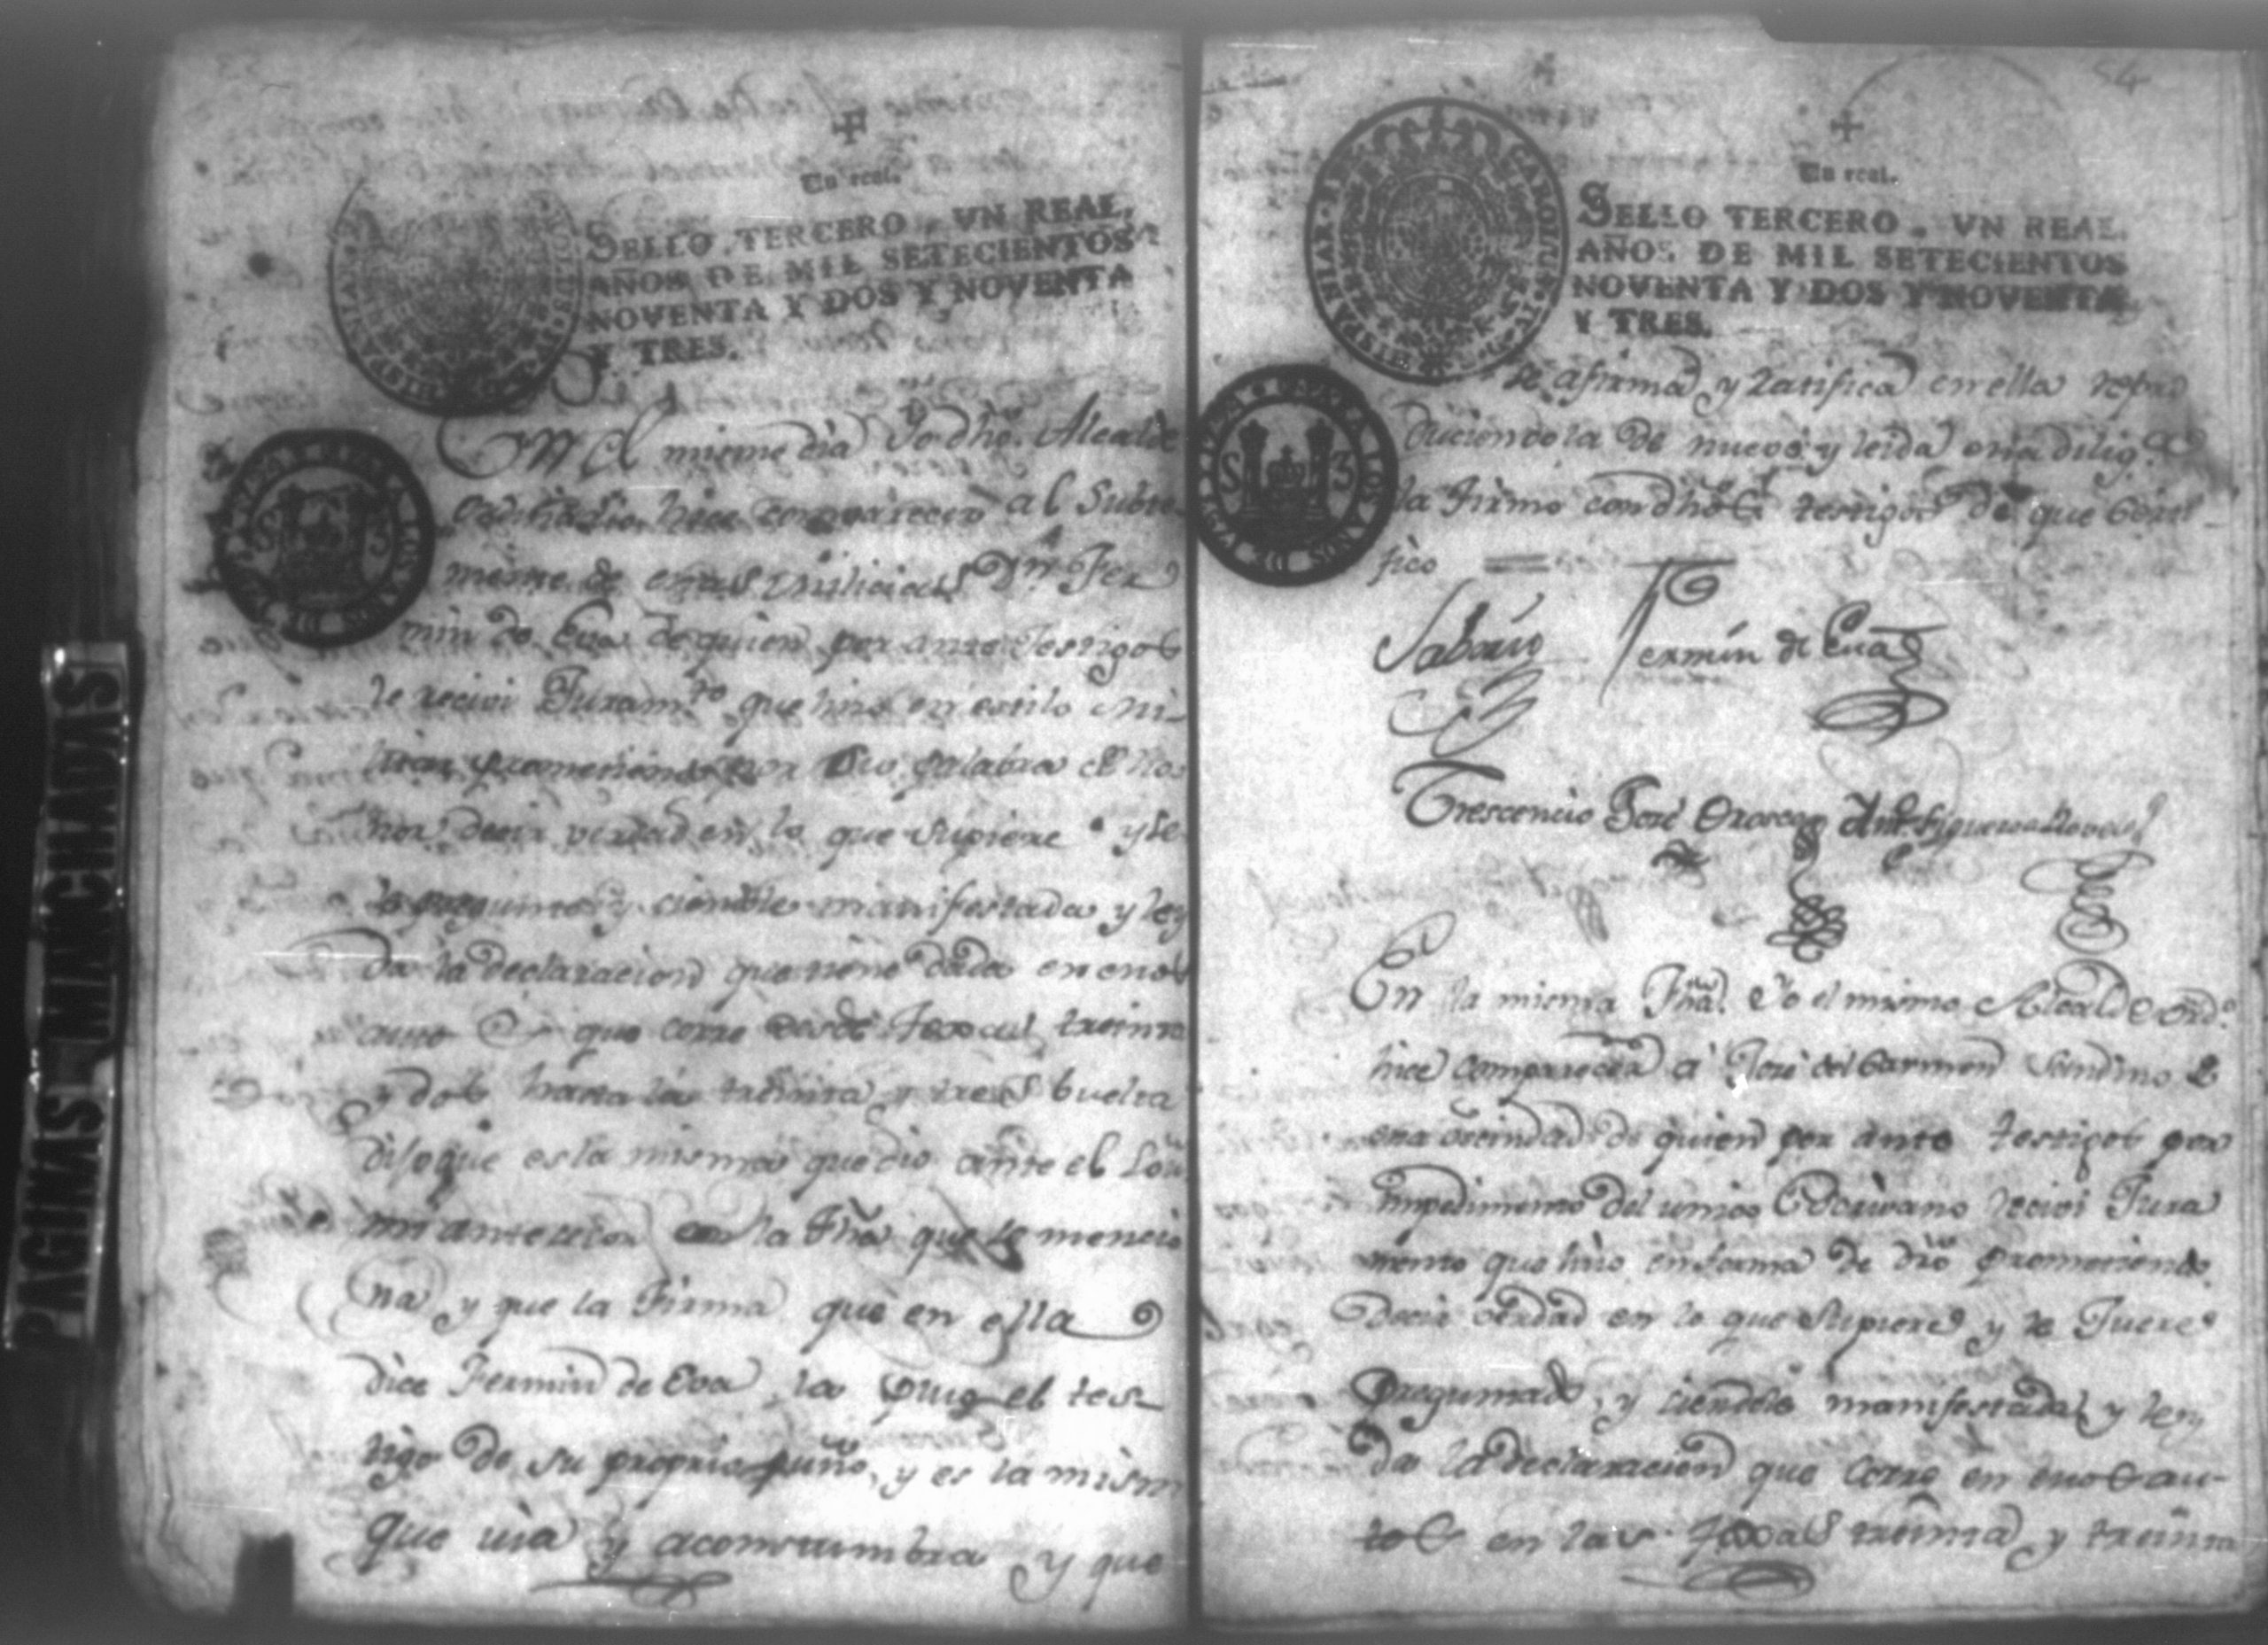 PAGINAS MANCHADAS
Un real.
SELLO TERCERO, VN REAL,
AÑOS DE MIL SETECIENTOS
NOVENTA Y DOS Y NOVENTA
Y TRES.
En el mismo dia Yo dho. Alcalde
ordinario hice comparecer al Subte
niente de estas Milicias Dn. Fer
min de Eva de quien por ante testigos
le recivi Juramto. que hizo en estilo Mi-
litar prometiendo por su palabra de ho
nor decir verdad en lo que supiere y se
le pregunte y siendole manifestada y ley
da la declaracion que tiene dada en estos
autos que corre desde foxas treinta
y dos hasta la treinta y tres buelta
dijo que es la misma que dio ante el Sor.
mi antecesor en la fha que se mencio
na y que la Firma que en ella
dice Fermin de Eva la puso el tes
tigo de su proprio puño, y es la mism
que usa y acostumbra y que
54
Un real.
SELLO TERCERO, VN REAL,
AÑOS DE MIL SETECIENTOS
NOVENTA Y DOS Y NOVENTA
Y TRES.
CAROLUS IV
HISPANIAR REX
S 3
se afirma y ratifica en ella repro
duciendola de nuevo y leida esta dilig.
la firmo con dhos testigos de que certi
fico
Fermín de Eva
Crescencio José Orosco
En la misma Fha. Yo el mismo Alcalde Ord.o
hice comparecer a José del Carmen Sendino de
esta vecindad de quien por ante testigos por
impedimento del unico Escrivano recivi Jura
mento que hizo en forma de dro prometiendo
Decir verdad en lo que Supiere y se Fuere
preguntado, y siendole manifestada y ley
da la declaracion que corre en estos au-
tos en las foxas treinta y treinta